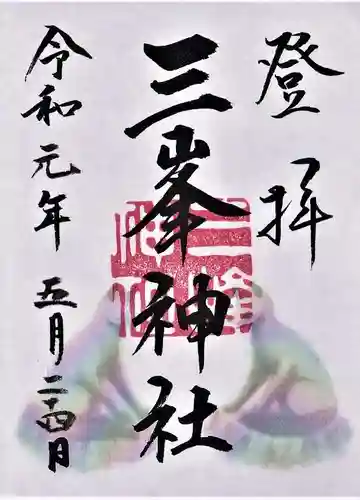 登拝
三峯神社
令和元年五月二十四日
三峰
神社